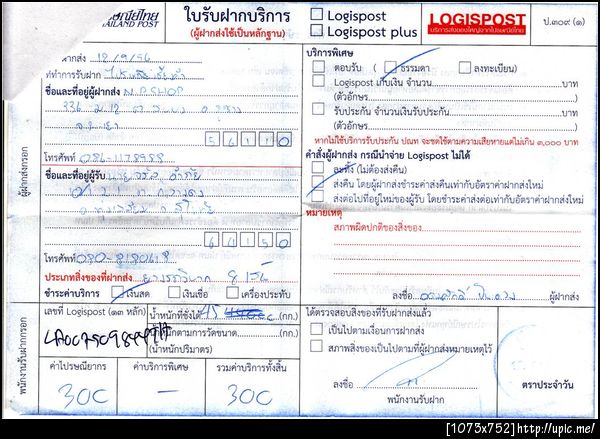 ไปรษณีย์ไทย
THAILAND POST
ใบรับฝากบริการ
(ผู้ฝากส่งใช้เป็นหลักฐาน)
Logispost
Logispost plus
LOGISPOST
บริการส่งของใหญ่จากไปรษณีย์ไทย
ป.๓๐๙ (๑)
ฝากส่ง 12/9/56
ที่ทำการรับฝาก
ชื่อและที่อยู่ผู้ฝากส่ง N.P SHOP
336 ม.12
56110
โทรศัพท์ 086-1178988
ชื่อและที่อยู่ผู้รับ
64150
โทรศัพท์
ประเภทสิ่งของที่ฝากส่ง
ชำระค่าบริการ เงินสด เงินเชื่อ เครื่องประทับ
ผู้ฝากส่งกรอก
บริการพิเศษ
ตอบรับ ( ธรรมดา ลงทะเบียน)
Logispost เก็บเงิน จำนวน บาท
(ตัวอักษร )
รับประกัน จำนวนเงินรับประกัน บาท
(ตัวอักษร )
หากไม่ใช้บริการรับประกัน ปณท จะชดใช้ตามความเสียหายแต่ไม่เกิน ๓,๐๐๐ บาท
คำสั่งผู้ฝากส่ง กรณีนำจ่าย Logispost ไม่ได้
ละทิ้ง (ไม่ต้องส่งคืน)
ส่งคืน โดยผู้ฝากส่งชำระค่าส่งคืนเท่ากับอัตราค่าฝากส่งใหม่
ส่งต่อไปที่อยู่ใหม่ของผู้รับ โดยชำระค่าส่งต่อเท่ากับอัตราค่าฝากส่งใหม่
หมายเหตุ
สภาพผิดปกติของสิ่งของ
ลงชื่อ ผู้ฝากส่ง
พนักงานรับฝากกรอก
เลขที่ Logispost (๑๓ หลัก)
น้ำหนักที่ชั่งได้ 45 (กก.)
น้ำหนักตามการวัดขนาด (กก.)
(น้ำหนักปริมาตร)
ค่าไปรษณียากร
300
ค่าบริการพิเศษ
—
รวมค่าบริการทั้งสิ้น
300
ได้ตรวจสอบสิ่งของที่รับฝากส่งแล้ว
เป็นไปตามเงื่อนไขการฝากส่ง
สภาพสิ่งของเป็นไปตามที่ผู้ฝากส่งหมายเหตุไว้
ลงชื่อ
พนักงานรับฝาก
ตราประจำวัน
[1073x752]http://upic.me/